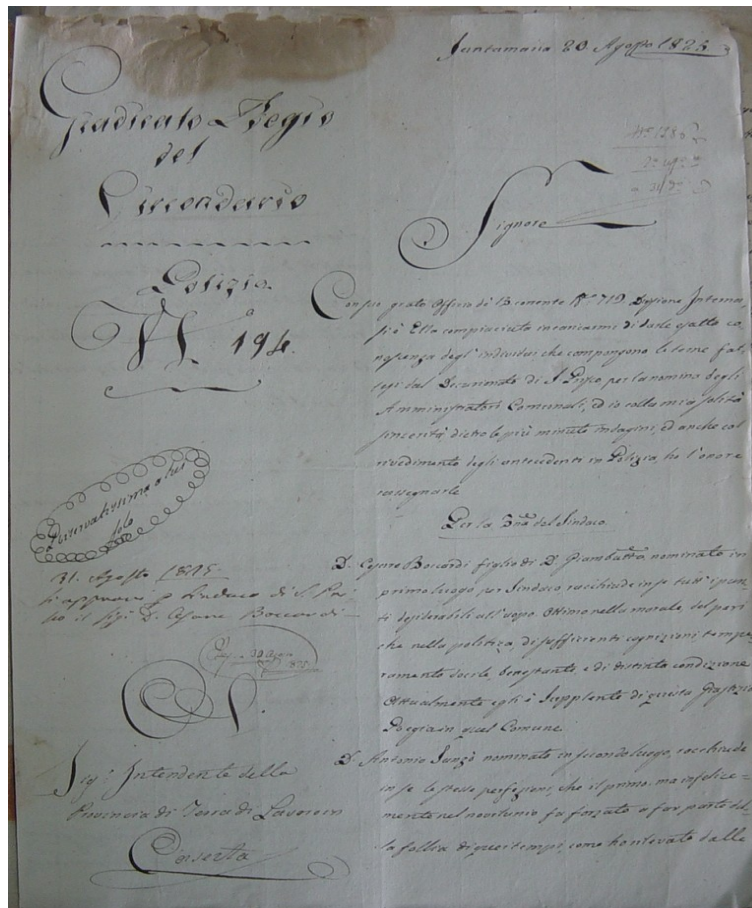 Santamaria 20 Agosto 1825
Giudicato Regio
del
Circondario
Polizia
N.° 194.
Riservatissima a lui
solo
31. Agosto 1825
si approvi p Sindaco di S. Pri-
sco il Sig.r D. Cesare Boccardi
Sig.r Intendente della
Provincia di Terra di Lavoro in
Caserta
Signore
Con suo grato Officio di 13 corrente N.° 719 Divisione Interna,
si è Ella compiaciuta incaricarmi di darle esatta co
noscenza degl'individui che compongono le terne fat
tesi dal Decurionato di S. Prisco per la nomina degli
Amministratori Comunali, ed io colla mia solita
sincerità, dietro le più minute indagini, ed anche col
rivedimento degli antecedenti in Polizia, ho l'onore
rassegnarle
Per la Terna del Sindaco
D. Cesare Boccardi figlio di D. Giambatta nominato in
primo luogo per Sindaco racchiude in se tutt'i pun
ti desiderabili all'uopo. Ottimo nella morale, del pari
che nella politica, di sufficienti cognizioni, tempe
ramento docile, benestante, e di distinta condizione
Attualmente egli è Supplente di questa Giustizia
Regia in quel Comune
D. Antonio nominato in secondo luogo, racchiude
in se le stesse perfezioni, che il primo, ma infelice=
mente nel nonimestre fu forzato a far parte del
la follia di quei tempi, come ho rilevato dalle